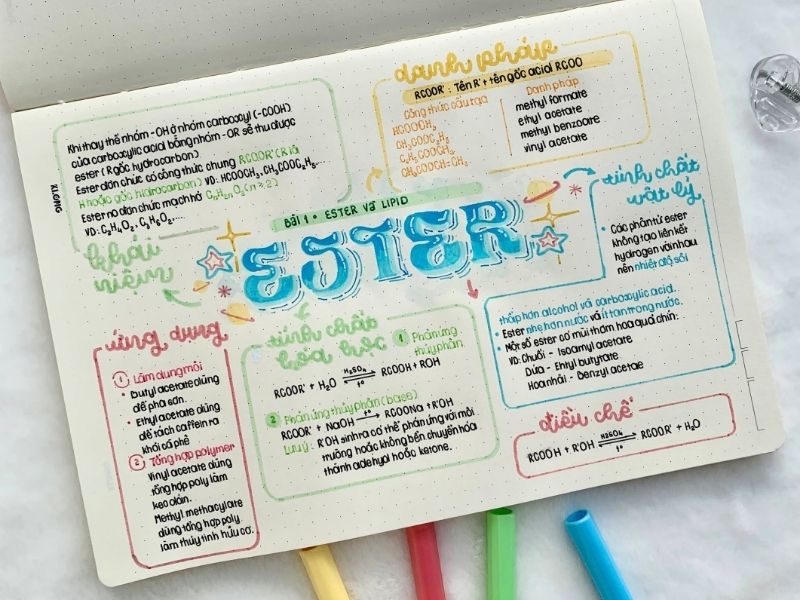 Khi thay thế nhóm -OH ở nhóm carboxyl (-COOH)
của carboxylic acid bằng nhóm -OR sẽ thu được
ester (R gốc hydrocarbon).
Ester đơn chức có công thức chung RCOOR' (R là
H hoặc gốc hidrocarbon) VD: HCOOCH₃, CH₃COOC₂H₅...
Ester no đơn chức mạch hở CₙH₂ₙO₂ (n ≥ 2)
VD: C₂H₄O₂, C₃H₆O₂,...
khái
niệm
KLONG
danh pháp
RCOOR' : Tên R' + tên gốc acid RCOO
Công thức cấu tạo Danh pháp
HCOOCH₃ methyl formate
CH₃COOC₂H₅ ethyl acetate
C₆H₅COOCH₃ methyl benzoate
CH₃COOCH=CH₂ vinyl acetate
Bài 1 • ESTER và LIPID
ESTER
tính chất
vật lý
• Các phân tử ester
không tạo liên kết
hydrogen với nhau
nên nhiệt độ sôi
thấp hơn alcohol và carboxylic acid.
• Ester nhẹ hơn nước và ít tan trong nước.
• Một số ester có mùi thơm hoa quả chín:
VD: Chuối - Isoamyl acetate
Dứa - Ethyl butyrate
Hoa nhài - Benzyl acetae
ứng dụng
1 Làm dung môi
• Butyl acetate dùng
để pha sơn.
• Ethyl acetate dùng
để tách caffein ra
khỏi cà phê
2 Tổng hợp polymer
Vinyl acetate dùng
tổng hợp poly làm
keo dán.
Methyl methacylate
dùng tổng hợp poly
làm thủy tinh hữu cơ.
tính chất
hóa học
1 Phản ứng
thủy phân
RCOOR' + H₂O ⇌ RCOOH + ROH
H₂SO₄
t°
2 Phản ứng thủy phân (base)
RCOOR' + NaOH → RCOONa + R'OH
t°
Lưu ý : R'OH sinh ra có thể phản ứng với môi
trường hoặc không bền chuyển hóa
thành aldehyd hoặc ketone.
điều chế
RCOOH + R'OH ⇌ RCOOR' + H₂O
H₂SO₄
t°